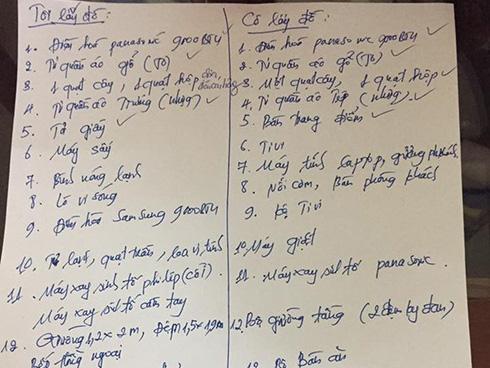 Tôi lấy đồ:
1. Điều hoà panasonic 9000BTU
2. Tủ quần áo gỗ (To)
3. 1 quạt cây, 1 quạt hộp
4. Tủ quần áo Trắng (nhựa)
5. Tủ giày
6. Máy sấy
7. Bình nóng lạnh
8. Lò vi sóng
9. Điều hoà Samsung 9000BTU
10. Tủ lạnh, quạt trần, loa vi tính
11. Máy xay sinh tố philip (CỐI)
Máy xay sinh tố cầm tay
12. Giường 1,2 x 2m, Đệm 1,5 x 1,9m
ngoài
Cô lấy đồ:
1. Điều hoà panasonic 9000BTU
2. Tủ quần áo gỗ (To)
3. Một quạt cây, 1 quạt hộp
4. Tủ quần áo (nhựa)
5. Bàn trang điểm
6. Tivi
7. Máy tính Laptop,
8. Nồi cơm, Bàn phòng khách
9. Kệ Tivi
10. Máy giặt
11. Máy xay sinh tố panasonic
12. giường tầng (2 đệm
Bộ Bàn ăn